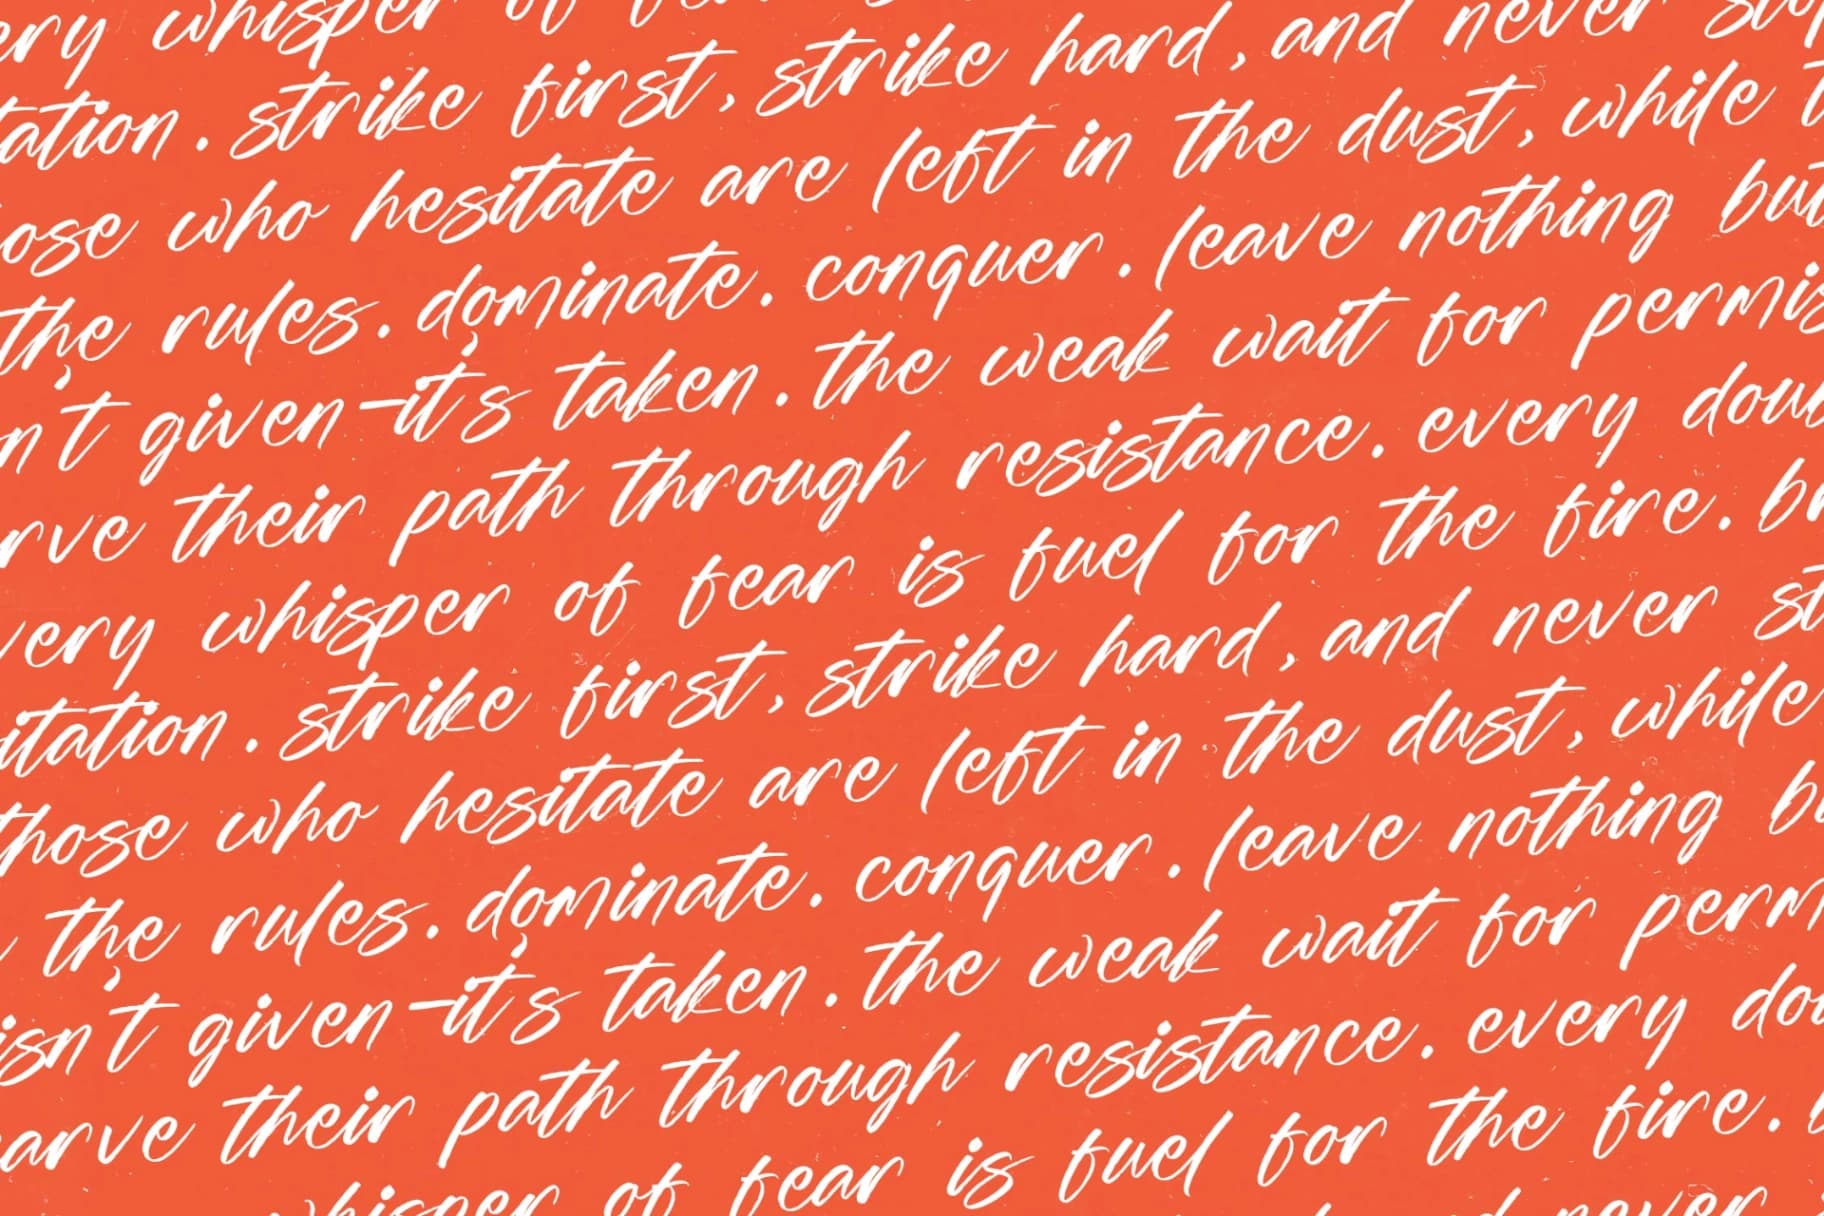 ery whisper of fear
tation. strike first, strike hard, and never stop
ose who hesitate are left in the dust, while t
the rules. dominate. conquer. leave nothing but
n't given-it's taken. the weak wait for permis
rve their path through resistance. every doub
very whisper of fear is fuel for the fire. br
itation. strike first, strike hard, and never st
those who hesitate are left in the dust, while
the rules. dominate. conquer. leave nothing bu
isn't given-it's taken. the weak wait for perm
arve their path through resistance. every dou
whisper of fear is fuel for the fire. b
hard, and never